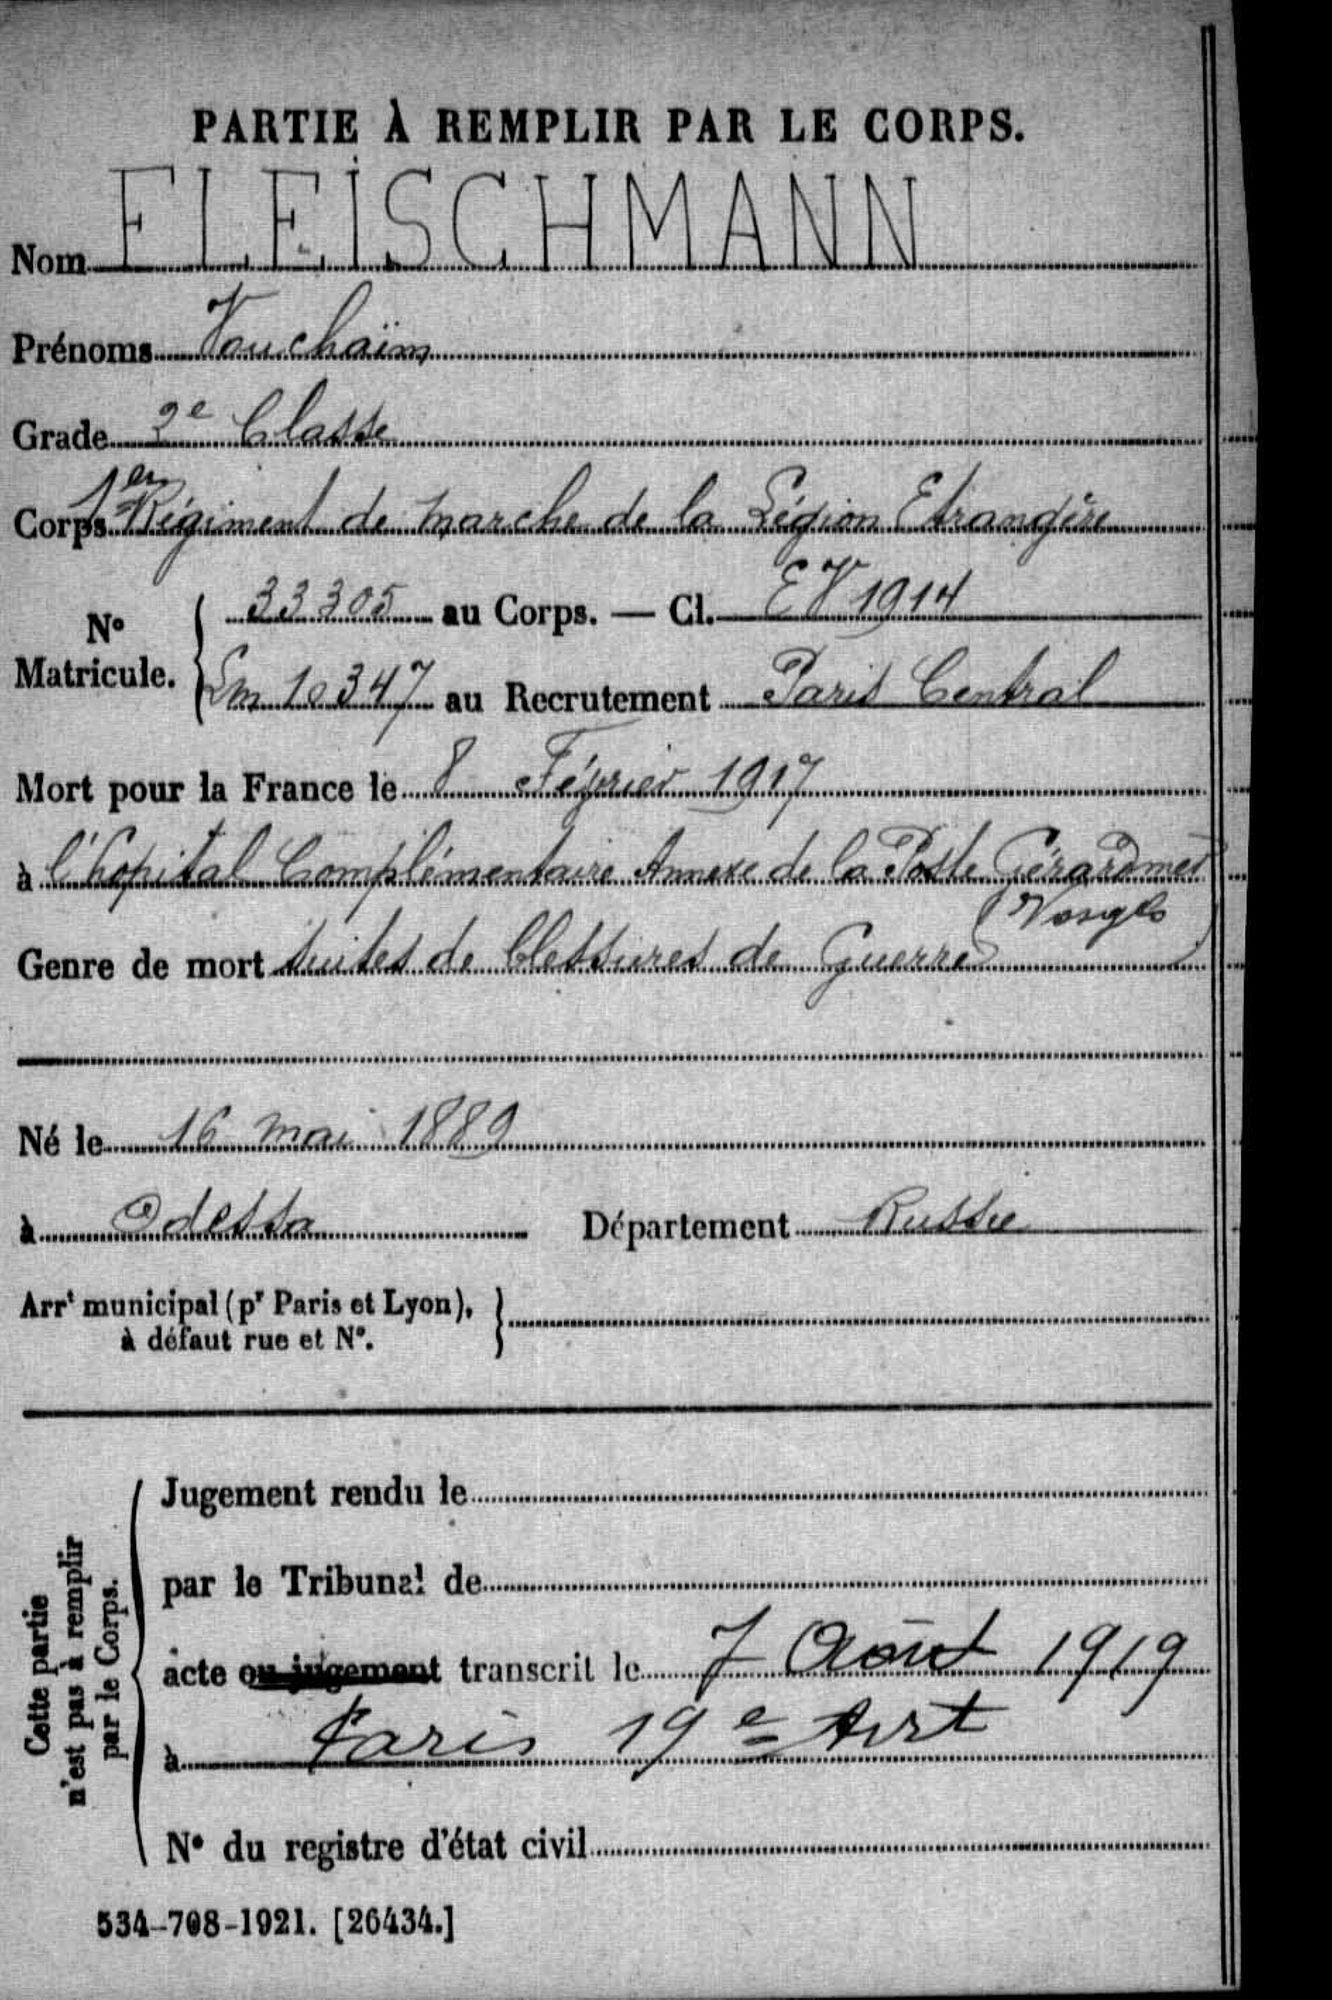 PARTIE À REMPLIR PAR LE CORPS.
Nom FLEISCHMANN
Prénoms Vouchaïm
Grade 2e Classe
Corps 1er Régiment de marche de la Légion Etrangère
N° Matricule. 33305 au Corps. — Cl. EV 1914
Lm 10347 au Recrutement Paris Central
Mort pour la France le 8 Février 1917
à l'hopital Complémentaire Annexe de la Poste Gérardmer
(Vosges)
Genre de mort suites de blessures de Guerre
Né le 16 mai 1889
à Odessa Département Russie
Arrt municipal (pr Paris et Lyon),
à défaut rue et N°.
Cette partie n'est pas à remplir par le Corps.
Jugement rendu le
par le Tribunal de
acte ou jugement transcrit le 7 Août 1919
à Paris 19e Arrt
N° du registre d'état civil
534-708-1921. [26434.]